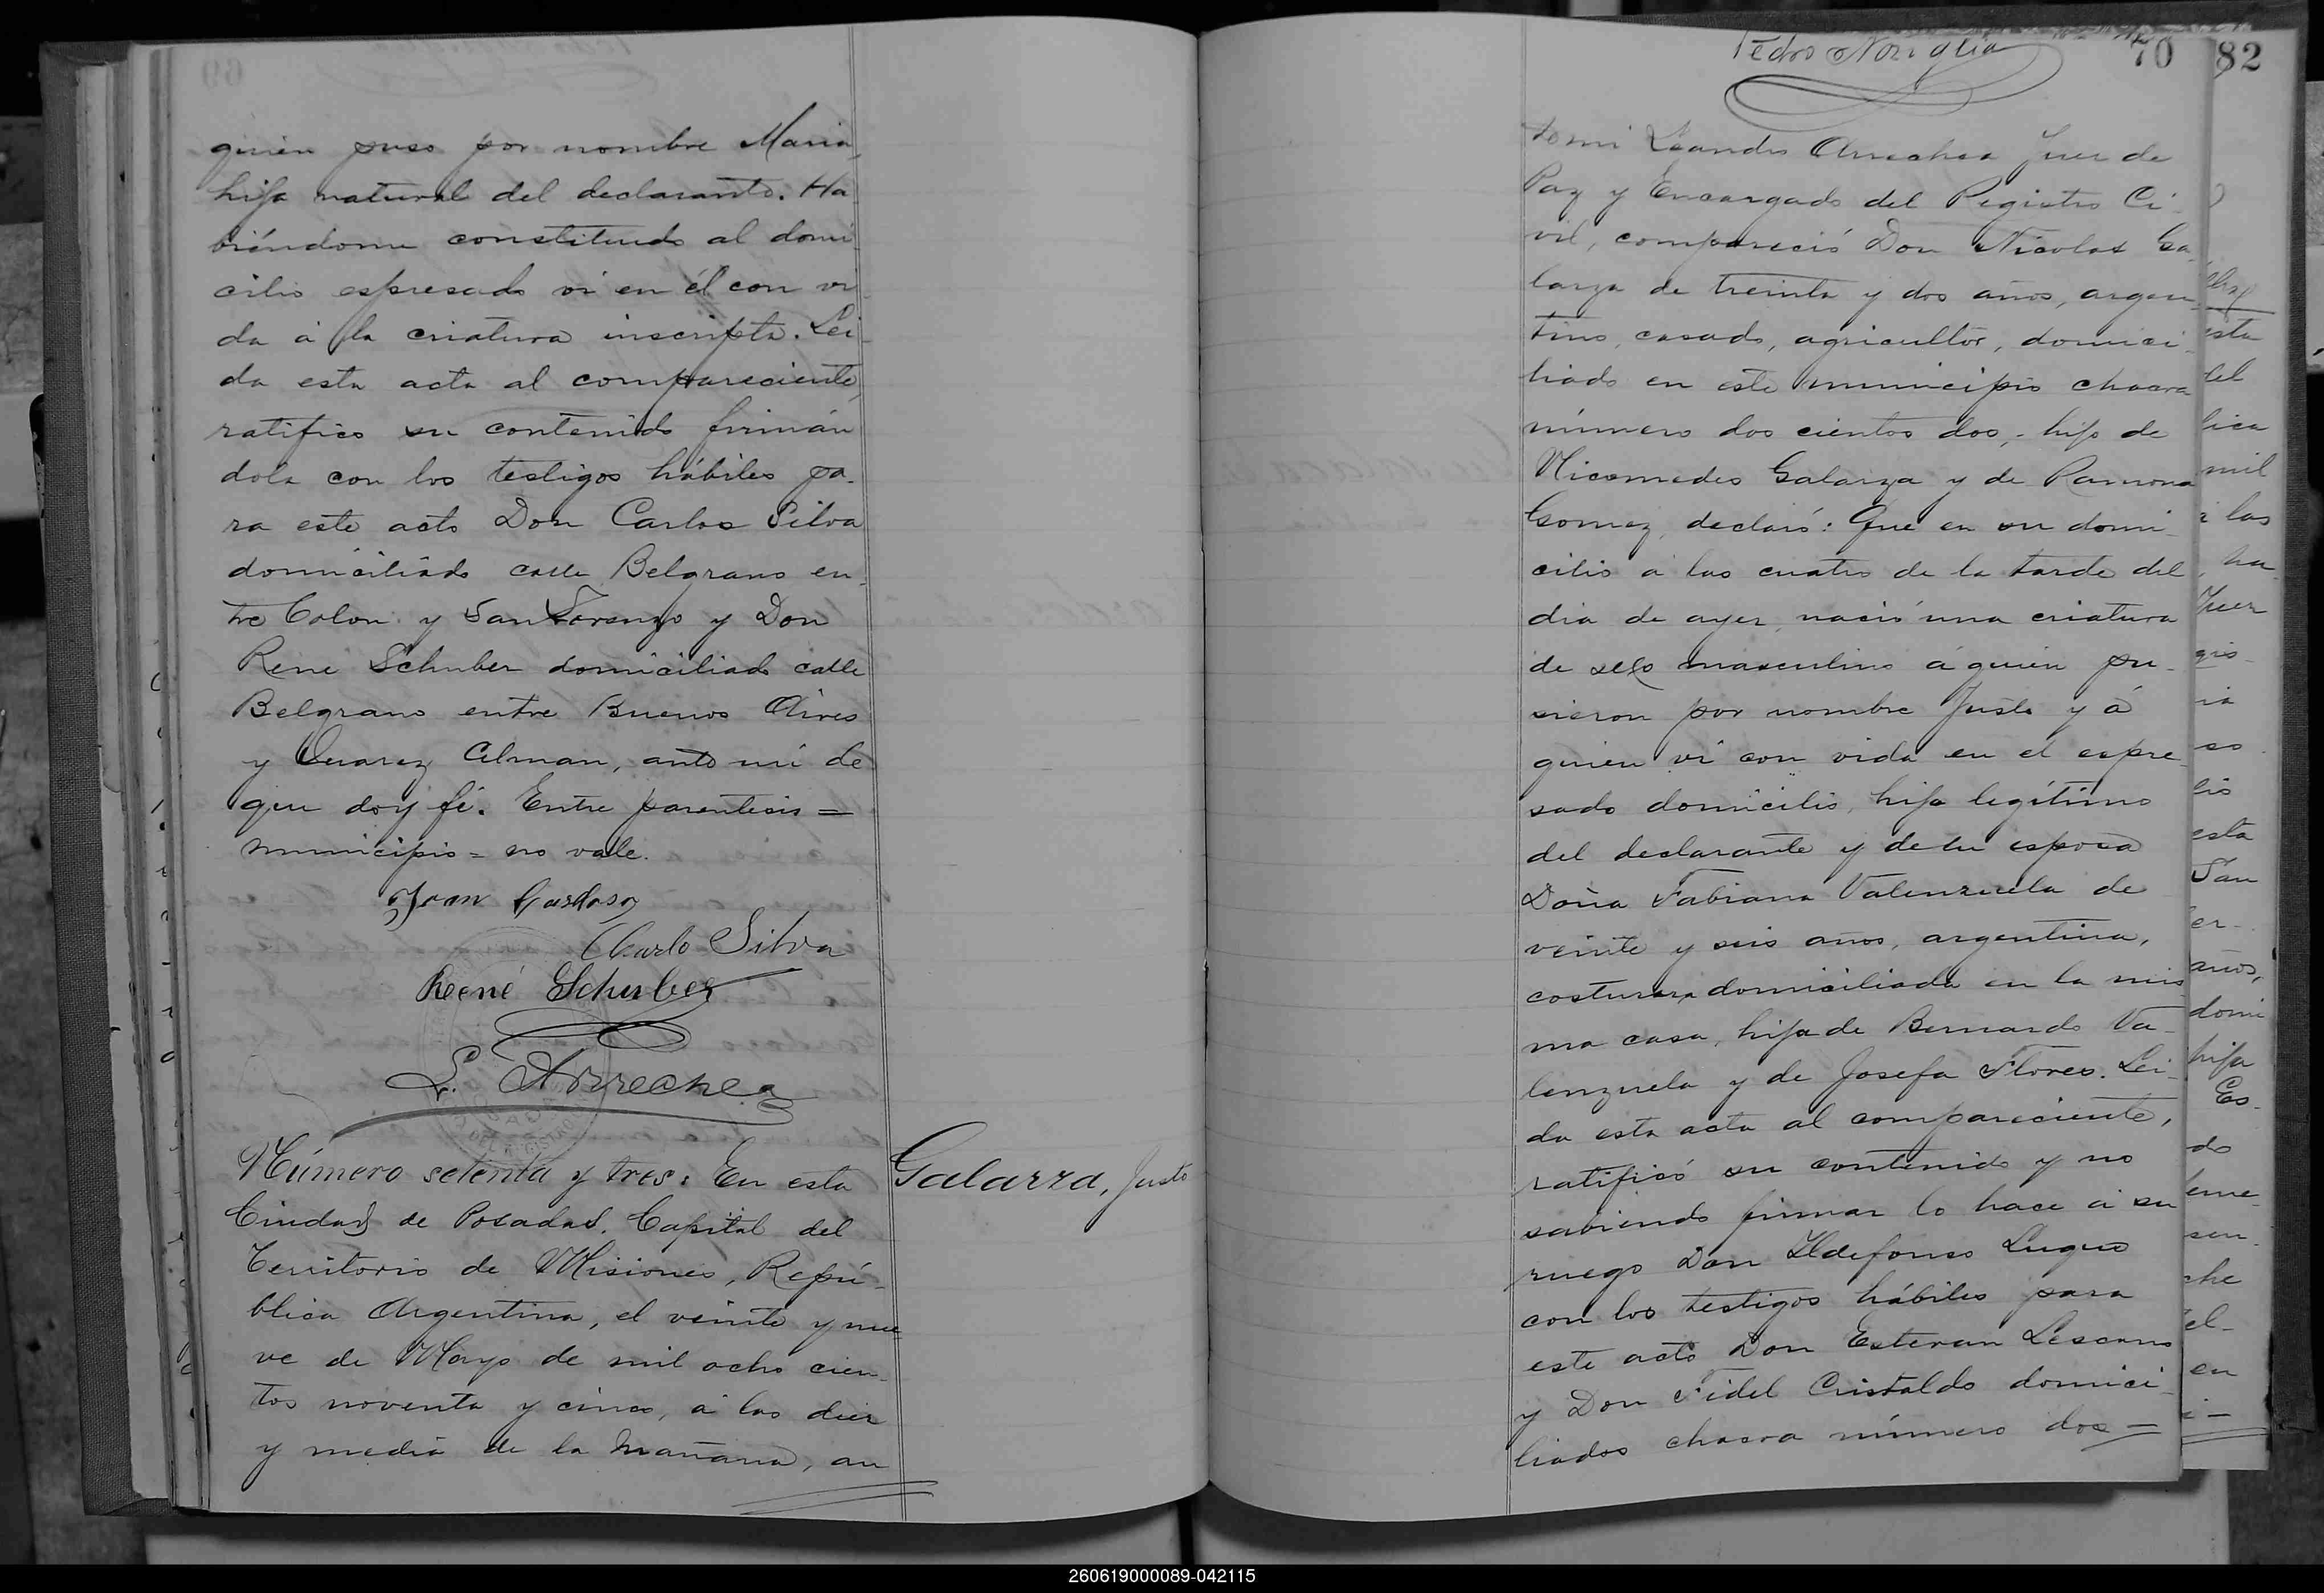 quien puso por nombre Maria,
hija natural del declarante. Ha
biéndome constituido al domi
cilio espresado vi en él con vi
da á la criatura inscripta. Lei
da esta acta al compareciente,
ratifico su contenido firmán
dola con los testigos hábiles pa-
ra este acto Don Carlos Silva
domiciliado calle Belgrano en-
tre Colon y San Lorenzo y Don
René Schuber domiciliado calle
Belgrano entre Buenos Aires
y Queraz Alman, ante mí de
que doy fé. Entre parentesis =
municipio = no vale.
Juan Cardoso
Carlo Silva
René Schuber
L. Arrechea
Número setenta y tres: En esta
Ciudad de Posadas, Capital del
Territorio de Misiones, Repú-
blica Argentina, el veinte y nue
ve de Mayo de mil ocho cien-
tos noventa y cinco, á las diez
y media de la mañana, an
Galarza, Justo
Pedro Noriglia
70
82
te mi Leandro Arrechea Juez de
Paz y Encargado del Registro Ci-
vil, compareció Don Nicolas Ga-
larza de treinta y dos años, argen-
tino, casado, agricultor, domici-
liado en este municipio chacra
número dos cientos dos, hijo de
Nicomedes Galarza y de Ramona
Gomez, declaró: Que en su domi-
cilio á las cuatro de la tarde del
dia de ayer, nació una criatura
de sexo masculino á quien pu-
sieron por nombre Justo y á
quien vi con vida en el espre
sado domicilio, hijo legítimo
del declarante y de su esposa
Doña Fabiana Valenzuela de
veinte y seis años, argentina,
costurera domiciliada en la mis
ma casa, hija de Bernardo Va-
lenzuela y de Josefa Flores. Lei-
da esta acta al compareciente,
ratificó su contenido y no
sabiendo firmar lo hace á su
ruego Don Ildefonso Luque
con los testigos hábiles para
este acto Don Estevan Lescano
y Don Fidel Cristaldo domici-
liados chacra número dos =